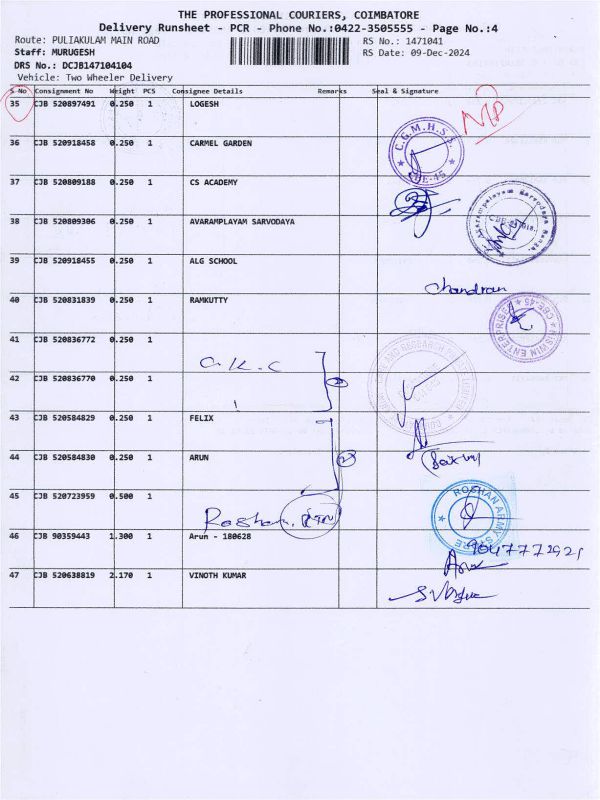 THE PROFESSIONAL COURIERS, COIMBATORE
Delivery Runsheet - PCR - Phone No.:0422-3505555 - Page No.:4
Route: PULIAKULAM MAIN ROAD
RS No.: 1471041
Staff: MURUGESH
RS Date: 09-Dec-2024
DRS No.: DCJB147104104
Vehicle: Two Wheeler Delivery
S No Consignment No Weight PCS Consignee Details Remarks Seal & Signature
35 CJB 520897491 0.250 1 LOGESH
36 CJB 520918458 0.250 1 CARMEL GARDEN
C.G.M.H.S.S.
CBE-45
37 CJB 520809188 0.250 1 CS ACADEMY
38 CJB 520809306 0.250 1 AVARAMPLAYAM SARVODAYA
Avarampalayam Sarvodaya Sangh
39 CJB 520918455 0.250 1 ALG SCHOOL
chandran
40 CJB 520831839 0.250 1 RAMKUTTY
NISWIN ENTERPRISES CBE-45
41 CJB 520836772 0.250 1
42 CJB 520836770 0.250 1
43 CJB 520584829 0.250 1 FELIX
44 CJB 520584830 0.250 1 ARUN
45 CJB 520723959 0.500 1 Roshan
ROSHAN ARMY STORE
46 CJB 90359443 1.300 1 Arun - 180628
9047772921
47 CJB 520638819 2.170 1 VINOTH KUMAR